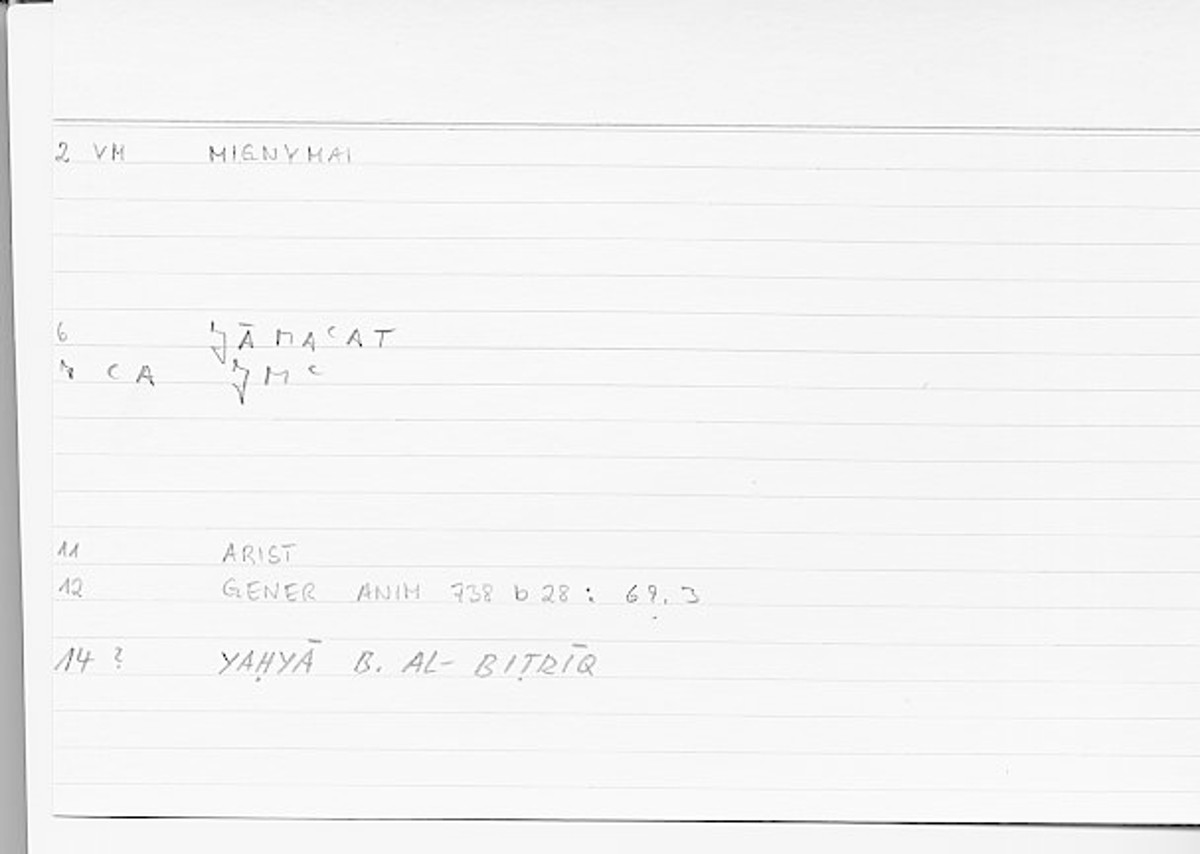 2 VM MIGNYMAI
6 J̌ĀMAʿAT
7 C A J̌Mʿ
11 ARIST
12 GENER ANIM 738 b 28 : 69.3
14 ? YAḤYĀ B. AL-BIṬRĪQ